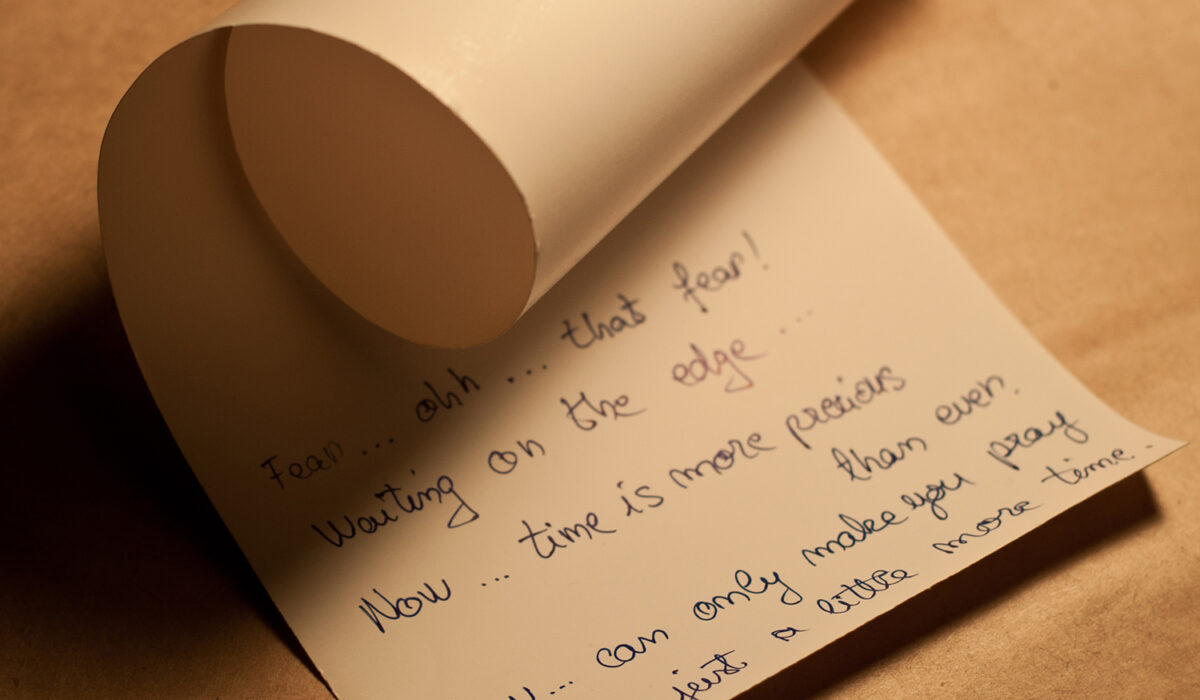 Fear... ohh ... that fear!
Waiting on the edge ...
Now ... time is more precious
than ever.
... can only make you pray
just a little more time.